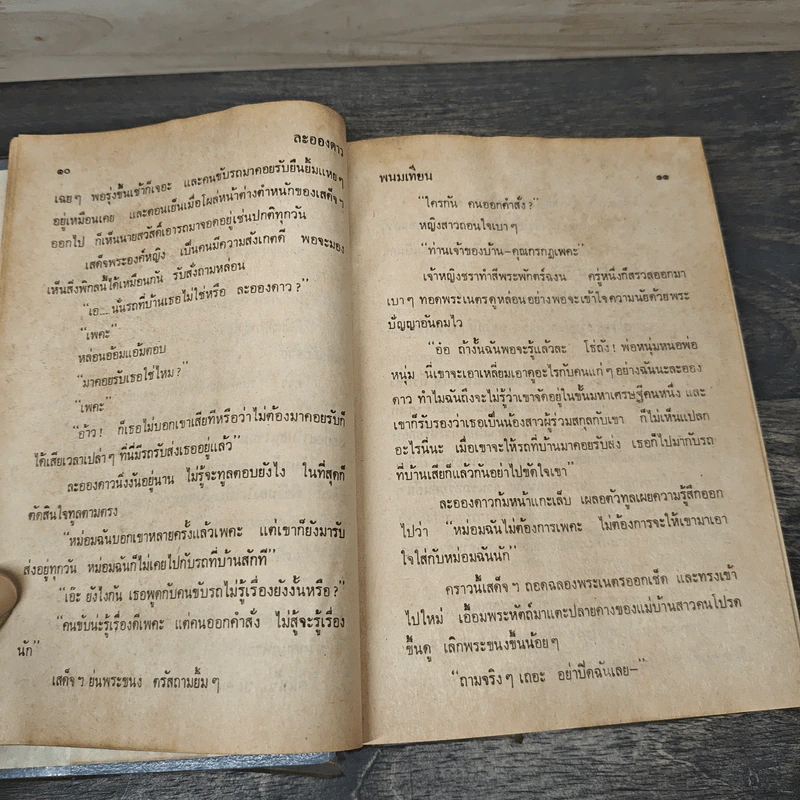 ละอองดาว
๑๐
เฉยๆ พอรุ่งขึ้นเช้าก็เจอะ และคนขับรถมาคอยรับยืนยิ้มแหยๆ
อยู่เหมือนเคย และตอนเย็นเมื่อโผล่หน้าต่างตำหนักของเสด็จฯ
ออกไป ก็เห็นนายสวัสดิ์เอารถมาจอดอยู่เช่นปกติทุกวัน
เสด็จพระองค์หญิง เป็นคนมีความสังเกตดี พอจะมอง
เห็นสิ่งพิกลนี้ได้เหมือนกัน รับสั่งถามหล่อน
“เอ....นั่นรถที่บ้านเธอไม่ใช่หรือ ละอองดาว ?”
“เพคะ”
หล่อนอ้อมแอ้มตอบ
“มาคอยรับเธอใช่ไหม ?”
“เพคะ”
“อ้าว ! ก็เธอไม่บอกเขาเสียทีหรือว่าไม่ต้องมาคอยรับก็
ได้เสียเวลาเปล่าๆ ที่นี่มีรถรับส่งเธออยู่แล้ว”
ละอองดาวนิ่งงันอยู่นาน ไม่รู้จะทูลตอบยังไง ในที่สุดก็
ตัดสินใจทูลตามตรง
“หม่อมฉันบอกเขาหลายครั้งแล้วเพคะ แต่เขาก็ยังมารับ
ส่งอยู่ทุกวัน หม่อมฉันก็ไม่เคยไปกับรถที่บ้านสักที”
“เอ๊ะ ยังไงกัน เธอพูดกับคนขับรถไม่รู้เรื่องยังงั้นหรือ ?”
“คนขับน่ะรู้เรื่องดีเพคะ แต่คนออกคำสั่ง ไม่สู้จะรู้เรื่อง
นัก”
เสด็จฯ ย่นพระขนง ตรัสถามยิ้มๆ
พนมเทียน
๑๑
“ใครกัน คนออกคำสั่ง ?”
หญิงสาวถอนใจเบาๆ
“ท่านเจ้าของบ้าน—คุณกรกฎเพคะ”
เจ้าหญิงชราทำสีพระพักตร์ฉงน ครู่หนึ่งก็สรวลออกมา
เบาๆ ทอดพระเนตรดูหล่อนอย่างพอจะเข้าใจความนัยด้วยพระ
ปัญญาอันคมไว
“อ๋อ ถ้างั้นฉันพอจะรู้แล้วละ โธ่ถัง ! พ่อหนุ่มหนอพ่อ
หนุ่ม นี่เขาจะเอาเหลี่ยมเอาคูอะไรกับคนแก่ๆ อย่างฉันนะละออง
ดาว ทำไมฉันถึงจะไม่รู้ว่าเขาจัดอยู่ในขั้นมหาเศรษฐีคนหนึ่ง และ
เขาก็รับรองว่าเธอเป็นน้องสาวผู้ร่วมสกุลกับเขา ก็ไม่เห็นแปลก
อะไรนี่นะ เมื่อเขาจะให้รถที่บ้านมาคอยรับส่ง เธอก็ไปมากับรถ
ที่บ้านเสียก็แล้วกันอย่าไปขัดใจเขา”
ละอองดาวก้มหน้าแกะเล็บ เผลอตัวทูลเผยความรู้สึกออก
ไปว่า “หม่อมฉันไม่ต้องการเพคะ ไม่ต้องการจะให้เขามาเอา
ใจใส่กับหม่อมฉันนัก”
คราวนี้เสด็จฯ ถอดฉลองพระเนตรออกเช็ด และทรงเข้า
ไปใหม่ เอื้อมพระหัตถ์มาแตะปลายคางของแม่บ้านสาวคนโปรด
ขึ้นดู เลิกพระขนงขึ้นน้อยๆ
“ถามจริงๆ เถอะ อย่าปิดฉันเลย—”